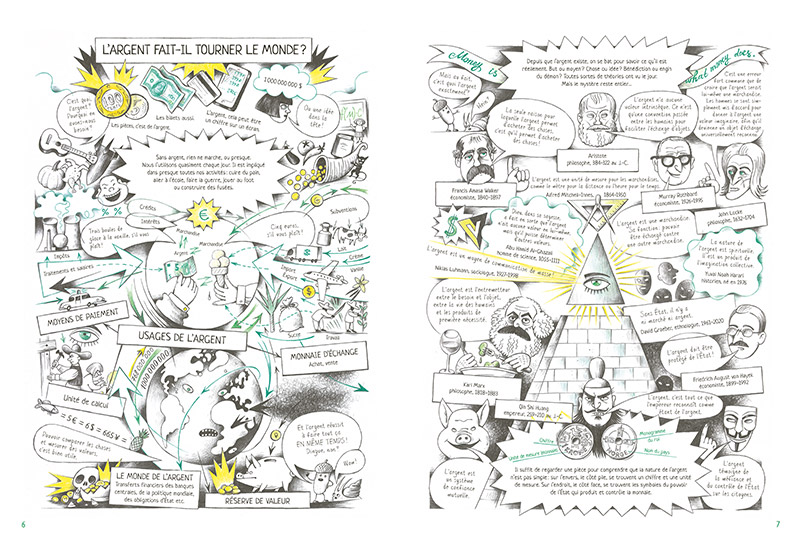 L'ARGENT FAIT-IL TOURNER LE MONDE ?
C'est quoi,
l'argent ?
Pourquoi en
avons-nous
besoin ?
Les pièces, c'est de l'argent.
Les billets aussi.
L'argent, cela peut être
un chiffre sur un écran.
1 000 000 000 $
Ou une idée
dans la
tête !
Sans argent, rien ne marche, ou presque.
Nous l'utilisons quasiment chaque jour. Il est impliqué
dans presque toutes nos activités : cuire du pain,
aller à l'école, faire la guerre, jouer au foot
ou construire des fusées.
% %
Crédits
Intérêts
€
Subventions
Trois boules de
glace à la vanille, s'il vous
plaît !
Marchandise
Argent
Marchandise
Cinq euros,
s'il vous plaît !
Lait
Crème
Valise
Impôts
Traitements et salaires
Import
Export
$
MOYENS DE PAIEMENT
Sucre
Travail
USAGES DE L'ARGENT
MONNAIE D'ÉCHANGE
Achat, vente
1000 000 000
Unité de calcul
= 5 € = 6 $ = 665 ¥ =
Pouvoir comparer les choses
et mesurer des valeurs,
c'est bien utile.
Et l'argent réussit
à faire tout ça
EN MÊME TEMPS !
Dingue, non ?
Wow !
LE MONDE DE L'ARGENT
Transferts financiers des banques
centrales, de la politique mondiale,
des obligations d'État etc.
RÉSERVE DE VALEUR
6
Money is
what money does.
Depuis que l'argent existe, on se bat pour savoir ce qu'il est
réellement. But ou moyen ? Chose ou idée ? Bénédiction ou engin
du démon ? Toutes sortes de théories ont vu le jour.
Mais le mystère reste entier...
Mais au fait,
c'est quoi l'argent
exactement ?
La seule raison pour
laquelle l'argent permet
d'acheter des choses,
c'est qu'il permet
d'acheter des
choses !
L'argent n'a aucune
valeur intrinsèque. Ce n'est
qu'une convention passée
entre les hommes pour
faciliter l'échange d'objets.
C'est une erreur
fort commune que de
croire que l'argent serait
lui-même une marchandise.
Les hommes se sont sim-
plement mis d'accord pour
donner à l'argent une
valeur imaginaire, afin qu'il
devienne un objet d'échange
universellement reconnu.
Aristote
philosophe, 384-322 av. J.-C.
Francis Amasa Walker
économiste, 1840-1897
L'argent est une unité de mesure pour les marchandises,
comme le mètre pour la distance ou l'heure pour le temps.
Alfred Mitchell-Innes, 1864-1950
Murray Rothbard
économiste, 1926-1995
John Locke
philosophe, 1632-1704
$
Dieu, dans sa sagesse,
a fait en sorte que l'argent
n'ait aucune valeur en lui-même
mais qu'il puisse déterminer
d'autres valeurs.
Abu Hamid Al-Ghazali
homme de science, 1055-1111
L'argent est une marchandise.
Sa fonction : pouvoir
être échangé contre
une autre marchandise.
La nature de
l'argent est spirituelle.
Il est un produit de
l'imagination collective.
Yuval Noah Harari
historien, né en 1976
L'argent est un moyen de communication de masse !
Niklas Luhmann, sociologue, 1927-1998
L'argent est l'entremetteur
entre le besoin et l'objet,
entre la vie des humains
et les produits de
première nécessité.
Sans État, il n'y a
ni marché ni argent.
David Graeber, ethnologue, 1961-2020
L'argent doit être
protégé de l'État !
Karl Marx
philosophe, 1818-1883
Friedrich August von Hayek
économiste, 1899-1992
Qin Shi Huang
empereur, 259-210 av. J.-C.
L'argent, c'est tout ce que
l'empereur reconnaît comme
étant de l'argent.
Chiffre
Monogramme
du roi
Unité de mesure (monnaie)
Nom du pays
Il suffit de regarder une pièce pour comprendre que la nature de l'argent
n'est pas simple : sur l'envers, le côté pile, se trouvent un chiffre et une unité
de mesure. Sur l'endroit, le côté face, se trouvent les symboles du pouvoir
de l'État qui produit et contrôle la monnaie.
L'argent est
un système
de confiance
mutuelle.
L'argent
témoigne de
la méfiance
et du contrôle de l'État
sur les citoyens.
7